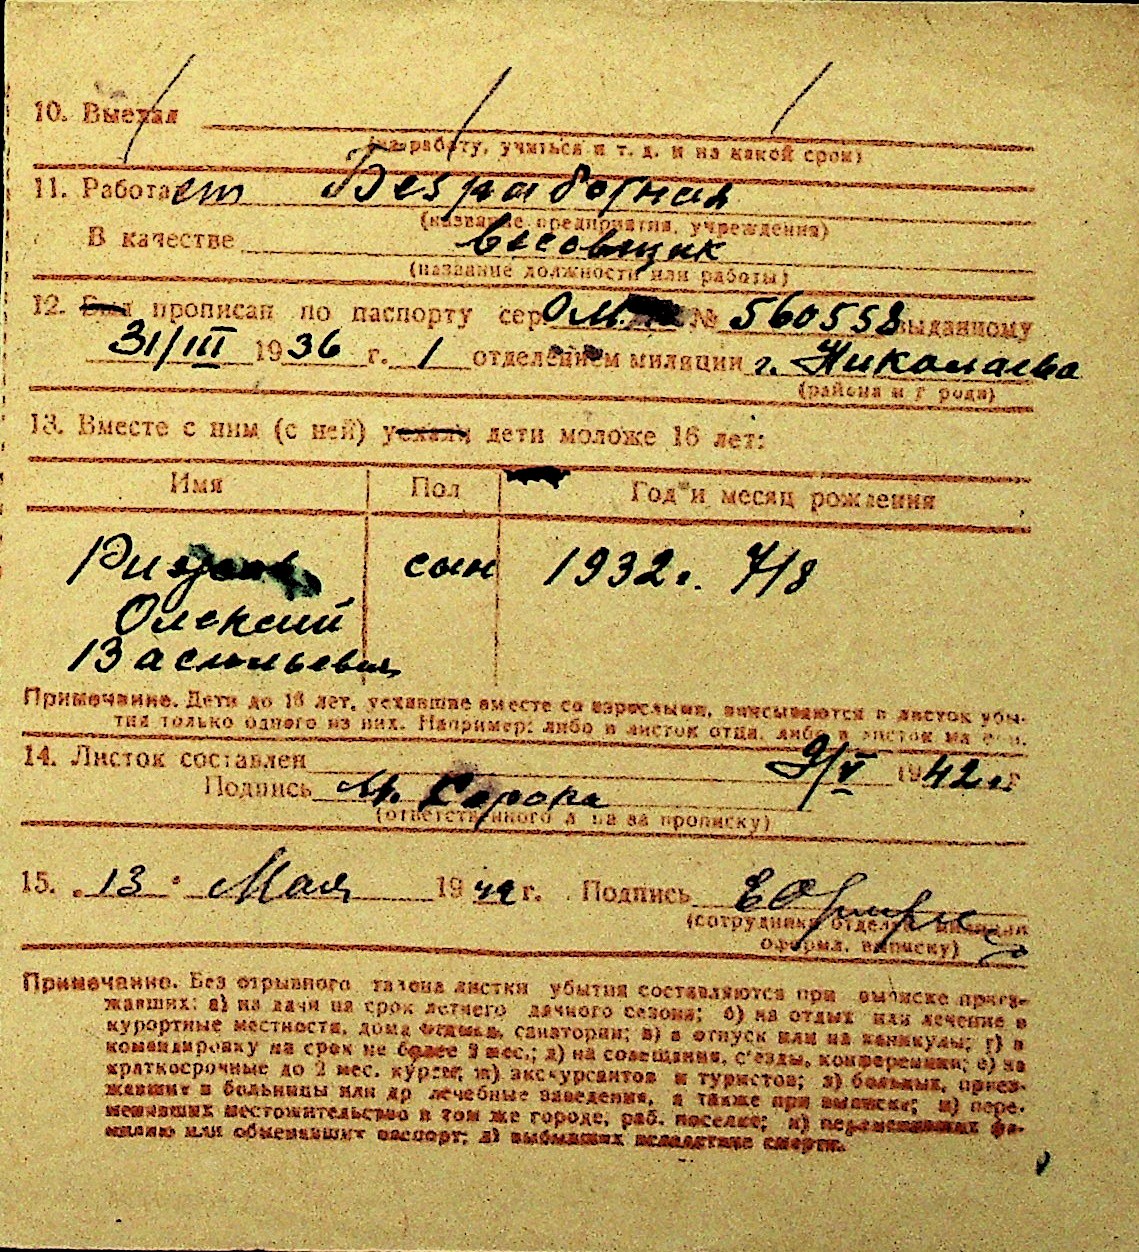 10. Выехал
(на работу, учиться и т. д. и на какой срок)
11. Работает Безработная
(название предприятия, учреждения)
В качестве весовщик
(название должности или работы)
12. Был прописан по паспорту сер. ОМ. № 560558 выданному
31/III 1936 г. 1 отделением милиции г. Николаева
(района и города)
13. Вместе с ним (с ней) уехали дети моложе 16 лет:
Имя Пол Год и месяц рождения
сын 1932 г. 7/8
Олексий
Васильевич
Примечание. Дети до 16 лет, уехавшие вместе со взрослыми, вписываются в листок убы-
тия только одного из них. Например: либо в листок отца, либо в листок матери.
14. Листок составлен 9/V 1942 г.
Подпись Сорока
(ответственного лица за прописку)
15. „13" Мая 1942 г. Подпись
(сотрудника отдела милиции
оформл. выписку)
Примечание. Без отрывного талона листки убытия составляются при выписке приез-
жавших: а) на дачи на срок летнего дачного сезона; б) на отдых или лечение в
курортные местности, дома отдыха, санатории; в) в отпуск или на каникулы; г) в
командировку на срок не более 2 мес.; д) на совещания, с'езды, конференции; е) на
краткосрочные до 2 мес. курсы; ж) экскурсантов и туристов; з) больных, приез-
жавших в больницы или др лечебные заведения, а также при выписке; и) пере-
менивших местожительство в том же городе, раб. поселке; к) переменивших фа-
милию или обменявших паспорт; л) выбывших вследствие смерти.